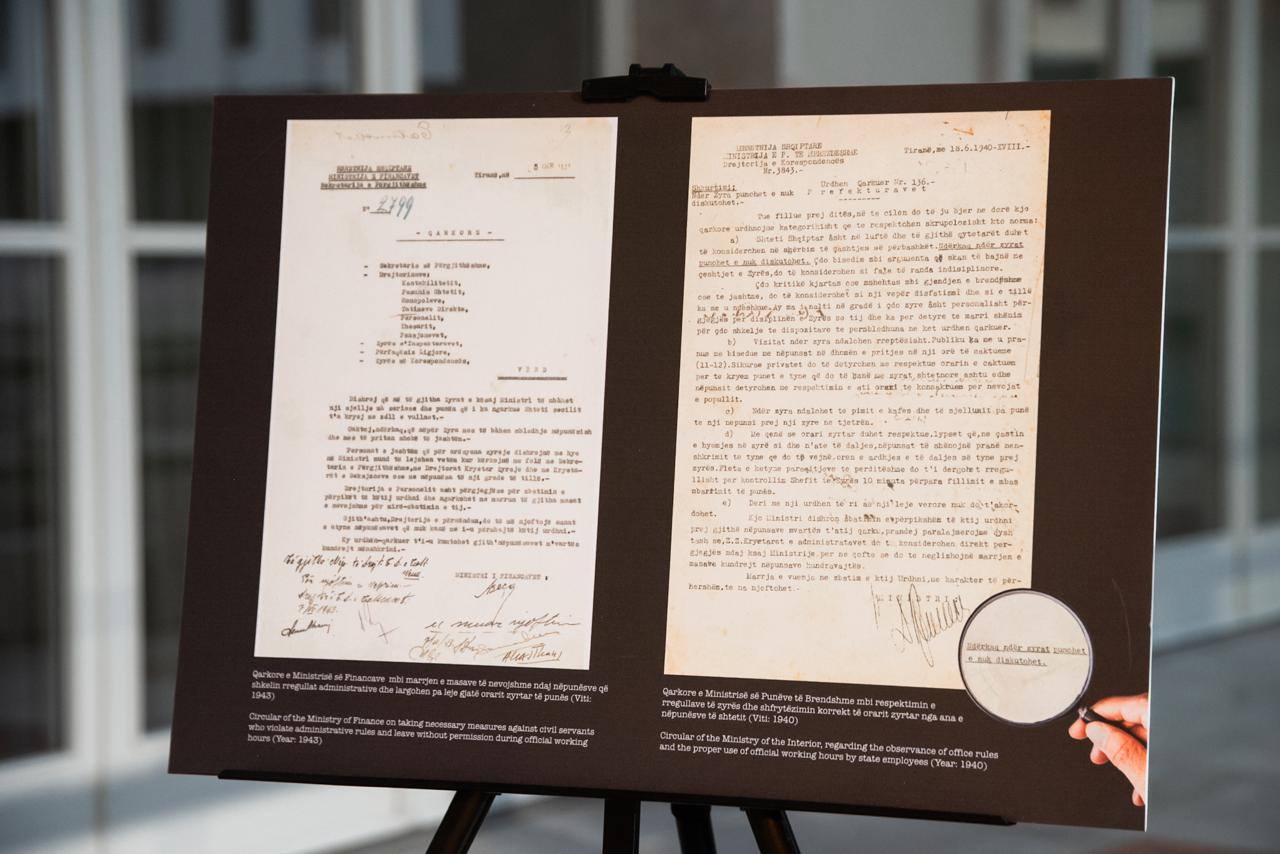 MBRETNIJA SHQIPTARE
MINISTRIJA E FINANCAVET
Sekretarija e Përgjithëshme
Tiranë, më
Nº 2799
- QARKORE -
- Sekretaris së Përgjithëshme,
- Drejtorinave:
Kontabilitetit,
Pasunis Shtetit,
Monopoleve,
Tatimeve Direkte,
Personelit,
Thesarit,
Pensjonevet,
- Zyrës s'Inspektoravet,
- Përfaqësis Ligjore,
- Zyrës së Korespondencës,
V E N D
Dishroj që në të gjitha Zyrat e kësaj Ministri të mbahet
një sjellje më serioze dhe punën që i ka ngarkue Shteti secilit
t'a kryej me zell e vullnet.-
Caktoj, ndërkaq, që nëpër Zyra mos të bâhen mbledhje nëpunësish
dhe mos të priten shokë të jashtëm.-
Personat e jashtëm që për ndonjena zyreje dishrojnë me hye
në Ministri mund të lejohen vetëm kur kërkojnë me folë me Sekre-
tarin e Përgjithëshme, me Drejtorat Kryetar zyreje dhe me Kryeta-
rët e Seksjoneve ose me nëpunësa të një grade të tillë.-
Drejtorija e Personelit asht përgjegjëse për zbatimin e
përpiktë të këtij urdhni dhe ngarkohet me marrun të gjitha masat
e nevojshme për mirë-zbatimin e tij.-
Gjith'ashtu, Drejtorija e përmendun, do të më njoftojë emnat
e atyne nëpunësavet që nuk kanë me i-u përmbajtë këtij urdhni.-
Ky urdhën-qarkuer t'i-u kumtohet gjith'nëpunësavet n'vartës
kundrejt nënshkrimi.-
MINISTRI I FINANCAVET :
MBRETNIJA SHQIPTARE
MINISTRIJA E P. TE MBRENDESHME
Drejtorija e Korespondencës
Nr.3843.-
Tiranë, me 18.6.1940-XVIII.-
Shënurtimi:
Nder Zyra punohet e nuk
diskutohet.-
Urdhen Qarkuer Nr. 136.-
P r e f e k t u r a v e t
Tue fillue prej ditës, në te cilen do të ju bjer ne dorë kjo
qarkore urdhnojme kategorikisht qe te respektohen skrupolozisht kto norma:
a) Shteti Shqiptar âsht në luftë dhe të gjithë qytetarët duhet
të konsiderohen në shërbim të çashtjes së përbashkët. Ndërkaq ndër zyrat
punohet e nuk diskutohet. Çdo bisedim mbi argumenta që skan të bajnë me
çeshtjet e Zyrës, do të konsiderohen si faje të randa indisiplinore.
Çdo kritikë kjartas ose mshehtas mbi gjendjen e brendëshme
ose te jashtme, do të konsiderohet si nji vepër disfatizmi dhe si e tillë
ka me u ndëshkue. Ay ma i nalti në gradë i çdo zyre âsht personalisht për-
gjegjës per disiplinën e Zyrës so tij dhe ka per detyre te marri shënim
për çdo shkelje te dispozitave te persbledhuna ne ket urdhen qarkuer.
b) Vizitat nder zyra ndalohen rreptësisht. Publiku ka me u pra-
nue me bisedue me nëpunsat në dhomën e pritjes në nji orë të caktueme
(11-12). Sikurse privatet do të detyrohen me respektue orarin e caktuem
per te kryem punet e tyne që do të kenë me zyrat shtetnore ashtu edhe
nëpunsit detyrohen me respektimin e ati orari te konsaktuem per nevojat
e popullit.
c) Ndër zyra ndalohet te pimit e kafes dhe të sjellunit pa punë
te nji nëpunsi prej nji zyre ne tjetrën.
d) Me qenë se orari zyrtar duhet respektue, lypset që, ne çastin
e hyemjes në zyrë si dhe n'ate të daljes, nëpunsat të shënojnë pranë nën-
shkrimit te tyne që do të vejnë, oren e ardhjes e të daljes së tyne prej
zyrës. Fleta e ketyne paraqitjeve te perditëshme do t'i dergohet rregu-
llisht per kontrollim Shefit te Zyrës 10 minuta përpara fillimit e mbas
mbarimit të punës.
e) Deri me nji urdhen të ri as nji leje verore nuk do t'akor-
dohet.
Kjo Ministri dishron zbatimin e përpikshëm të ktij urdhni
prej gjithë nëpunsave nvartës t'atij qarku, prandej paralajmërojme dysh
tash se, Z.Z. Kryetaret e administratavet do ta konsiderohen direkt për-
gjegjës ndaj ksaj Ministrije, per ne qofte se do te neglizhojnë marrjen e
masave kundrejt nëpunsave kundravajtës.
Marrja e vuenja ne zbatim e ktij Urdhni, me karakter të për-
hershëm, te na njoftohet.-
M I N I S T R I
Ndërkaq ndër zyrat punohet
e nuk diskutohet.
Qarkore e Ministrisë së Financave mbi marrjen e masave të nevojshme ndaj nëpunësve që
shkelin rregullat administrative dhe largohen pa leje gjatë orarit zyrtar të punës (Viti:
1943)
Circular of the Ministry of Finance on taking necessary measures against civil servants
who violate administrative rules and leave without permission during official working
hours (Year: 1943)
Qarkore e Ministrisë së Punëve të Brendshme mbi respektimin e
rregullave të zyrës dhe shfrytëzimin korrekt të orarit zyrtar nga ana e
nëpunësve të shtetit (Viti: 1940)
Circular of the Ministry of the Interior, regarding the observance of office rules
and the proper use of official working hours by state employees (Year: 1940)